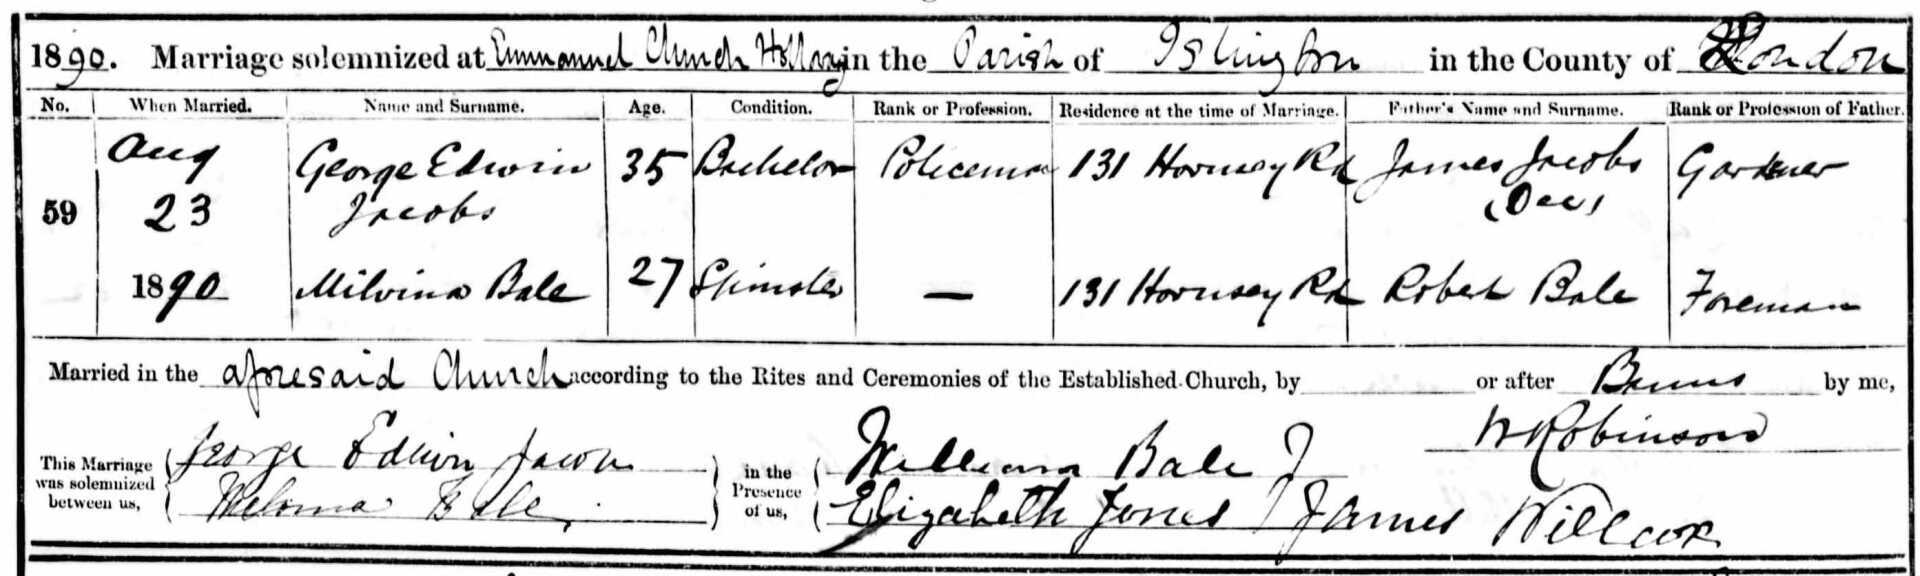 1890. Marriage solemnized at Emmanuel Church Holloway in the Parish of Islington in the County of London
No. When Married. Name and Surname. Age. Condition. Rank or Profession. Residence at the time of Marriage. Father's Name and Surname. Rank or Profession of Father.
Aug George Edwin 35 Bachelor Policeman 131 Hornsey Rd James Jacobs Gardener
59 23 Jacobs (Dec)
1890 Milvina Bale 27 Spinster — 131 Hornsey Rd Robert Bale Foreman
Married in the aforesaid Church according to the Rites and Ceremonies of the Established Church, by or after Banns by me,
This Marriage was solemnized between us, George Edwin Jacobs in the Presence of us, William Bale J W Robinson
Melvina Bale Elizabeth Jones James Willcox